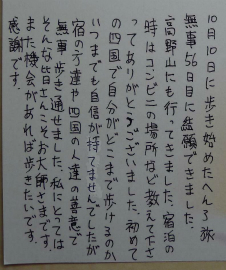 10月10日に歩き始めたへんろ旅
無事56日目に結願できました。
高野山にも行ってきました。宿泊の
時はコンビニの場所など教えて下さ
ってありがとうございました。初めて
の四国で自分がどこまで歩けるのか
いつまでも自信が持てませんでしたが
宿の方達や四国の人達の善意で
無事歩き通せました。私にとっては
そんな皆さんこそお大師さまです。
また機会があれば歩きたいです。
感謝です。